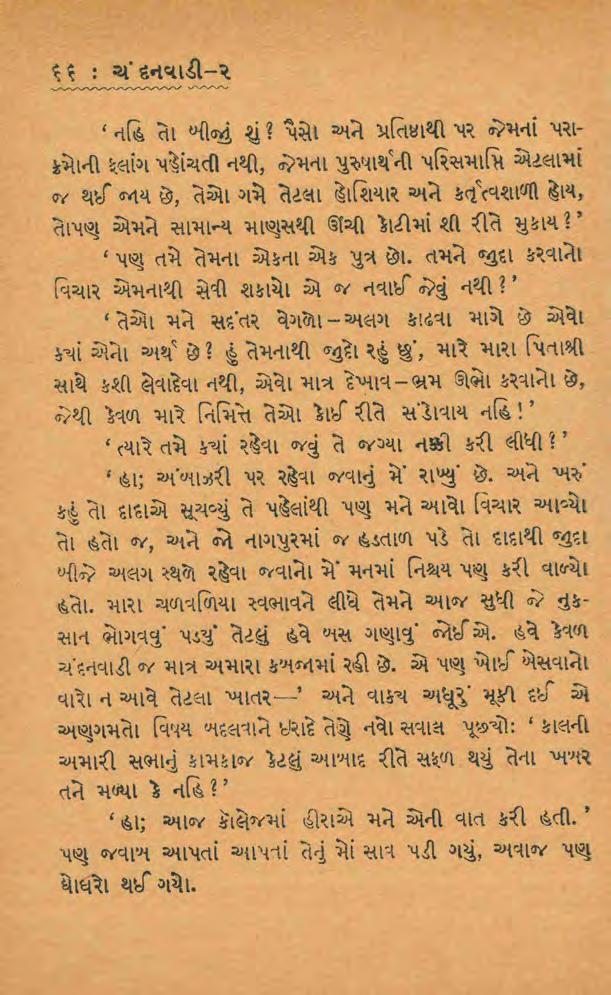 ૬૬ : ચંદનવાડી–૨
‘ નહિ તો બીજું શું ? પૈસો અને પ્રતિષ્ઠાથી પર જેમનાં પરા-
ક્રમોની ફલાંગ પહોંચતી નથી, જેમના પુરુષાર્થની પરિસમાપ્તિ એટલામાં
જ થઈ જાય છે, તેઓ ગમે તેટલા હોશિયાર અને કર્તૃત્વશાળી હોય,
તોપણ એમને સામાન્ય માણસથી ઊંચી કોટીમાં શી રીતે મુકાય ? ’
‘ પણ તમે તેમના એકના એક પુત્ર છો. તમને જુદા કરવાનો
વિચાર એમનાથી સેવી શકાયો એ જ નવાઈ જેવું નથી ? ’
‘ તેઓ મને સદંતર વેગળો – અલગ કાઢવા માગે છે એવો
ક્યાં એનો અર્થ છે ? હું તેમનાથી જુદો રહું છું, મારે મારા પિતાશ્રી
સાથે કશી લેવાદેવા નથી, એવો માત્ર દેખાવ – ભ્રમ ઊભો કરવાનો છે,
જેથી કેવળ મારે નિમિત્તે તેઓ કોઈ રીતે સંડોવાય નહિ ! ’
‘ ત્યારે તમે ક્યાં રહેવા જવું તે જગ્યા નક્કી કરી લીધી ? ’
‘ હા; અંબાઝરી પર રહેવા જવાનું મેં રાખ્યું છે. અને ખરું
કહું તો દાદાએ સૂચવ્યું તે પહેલાંથી પણ મને આવો વિચાર આવ્યો
તો હતો જ, અને જો નાગપુરમાં જ હડતાળ પડે તો દાદાથી જુદા
બીજે અલગ સ્થળે રહેવા જવાનો મેં મનમાં નિશ્ચય પણ કરી વાળ્યો
હતો. મારા ચળવળિયા સ્વભાવને લીધે તેમને આજ સુધી જે નુક-
સાન ભોગવવું પડ્યું તેટલું હવે બસ ગણાવું જોઈએ. હવે કેવળ
ચંદનવાડી જ માત્ર અમારા કબજામાં રહી છે. એ પણ ખોઈ બેસવાનો
વારો ન આવે તેટલા ખાતર—’ અને વાક્ય અધૂરું મૂકી દઈ એ
અણગમતો વિષય બદલવાને ઇરાદે તેણે નવો સવાલ પૂછ્યો: ‘ કાલની
અમારી સભાનું કામકાજ કેટલું આબાદ રીતે સફળ થયું તેના ખબર
તને મળ્યા કે નહિ ? ’
‘ હા; આજ કૉલેજમાં હીરાએ મને એની વાત કરી હતી. ’
પણ જવાબ આપતાં આપતાં તેનું મોં સાવ પડી ગયું, અવાજ પણ
ઘોઘરો થઈ ગયો.